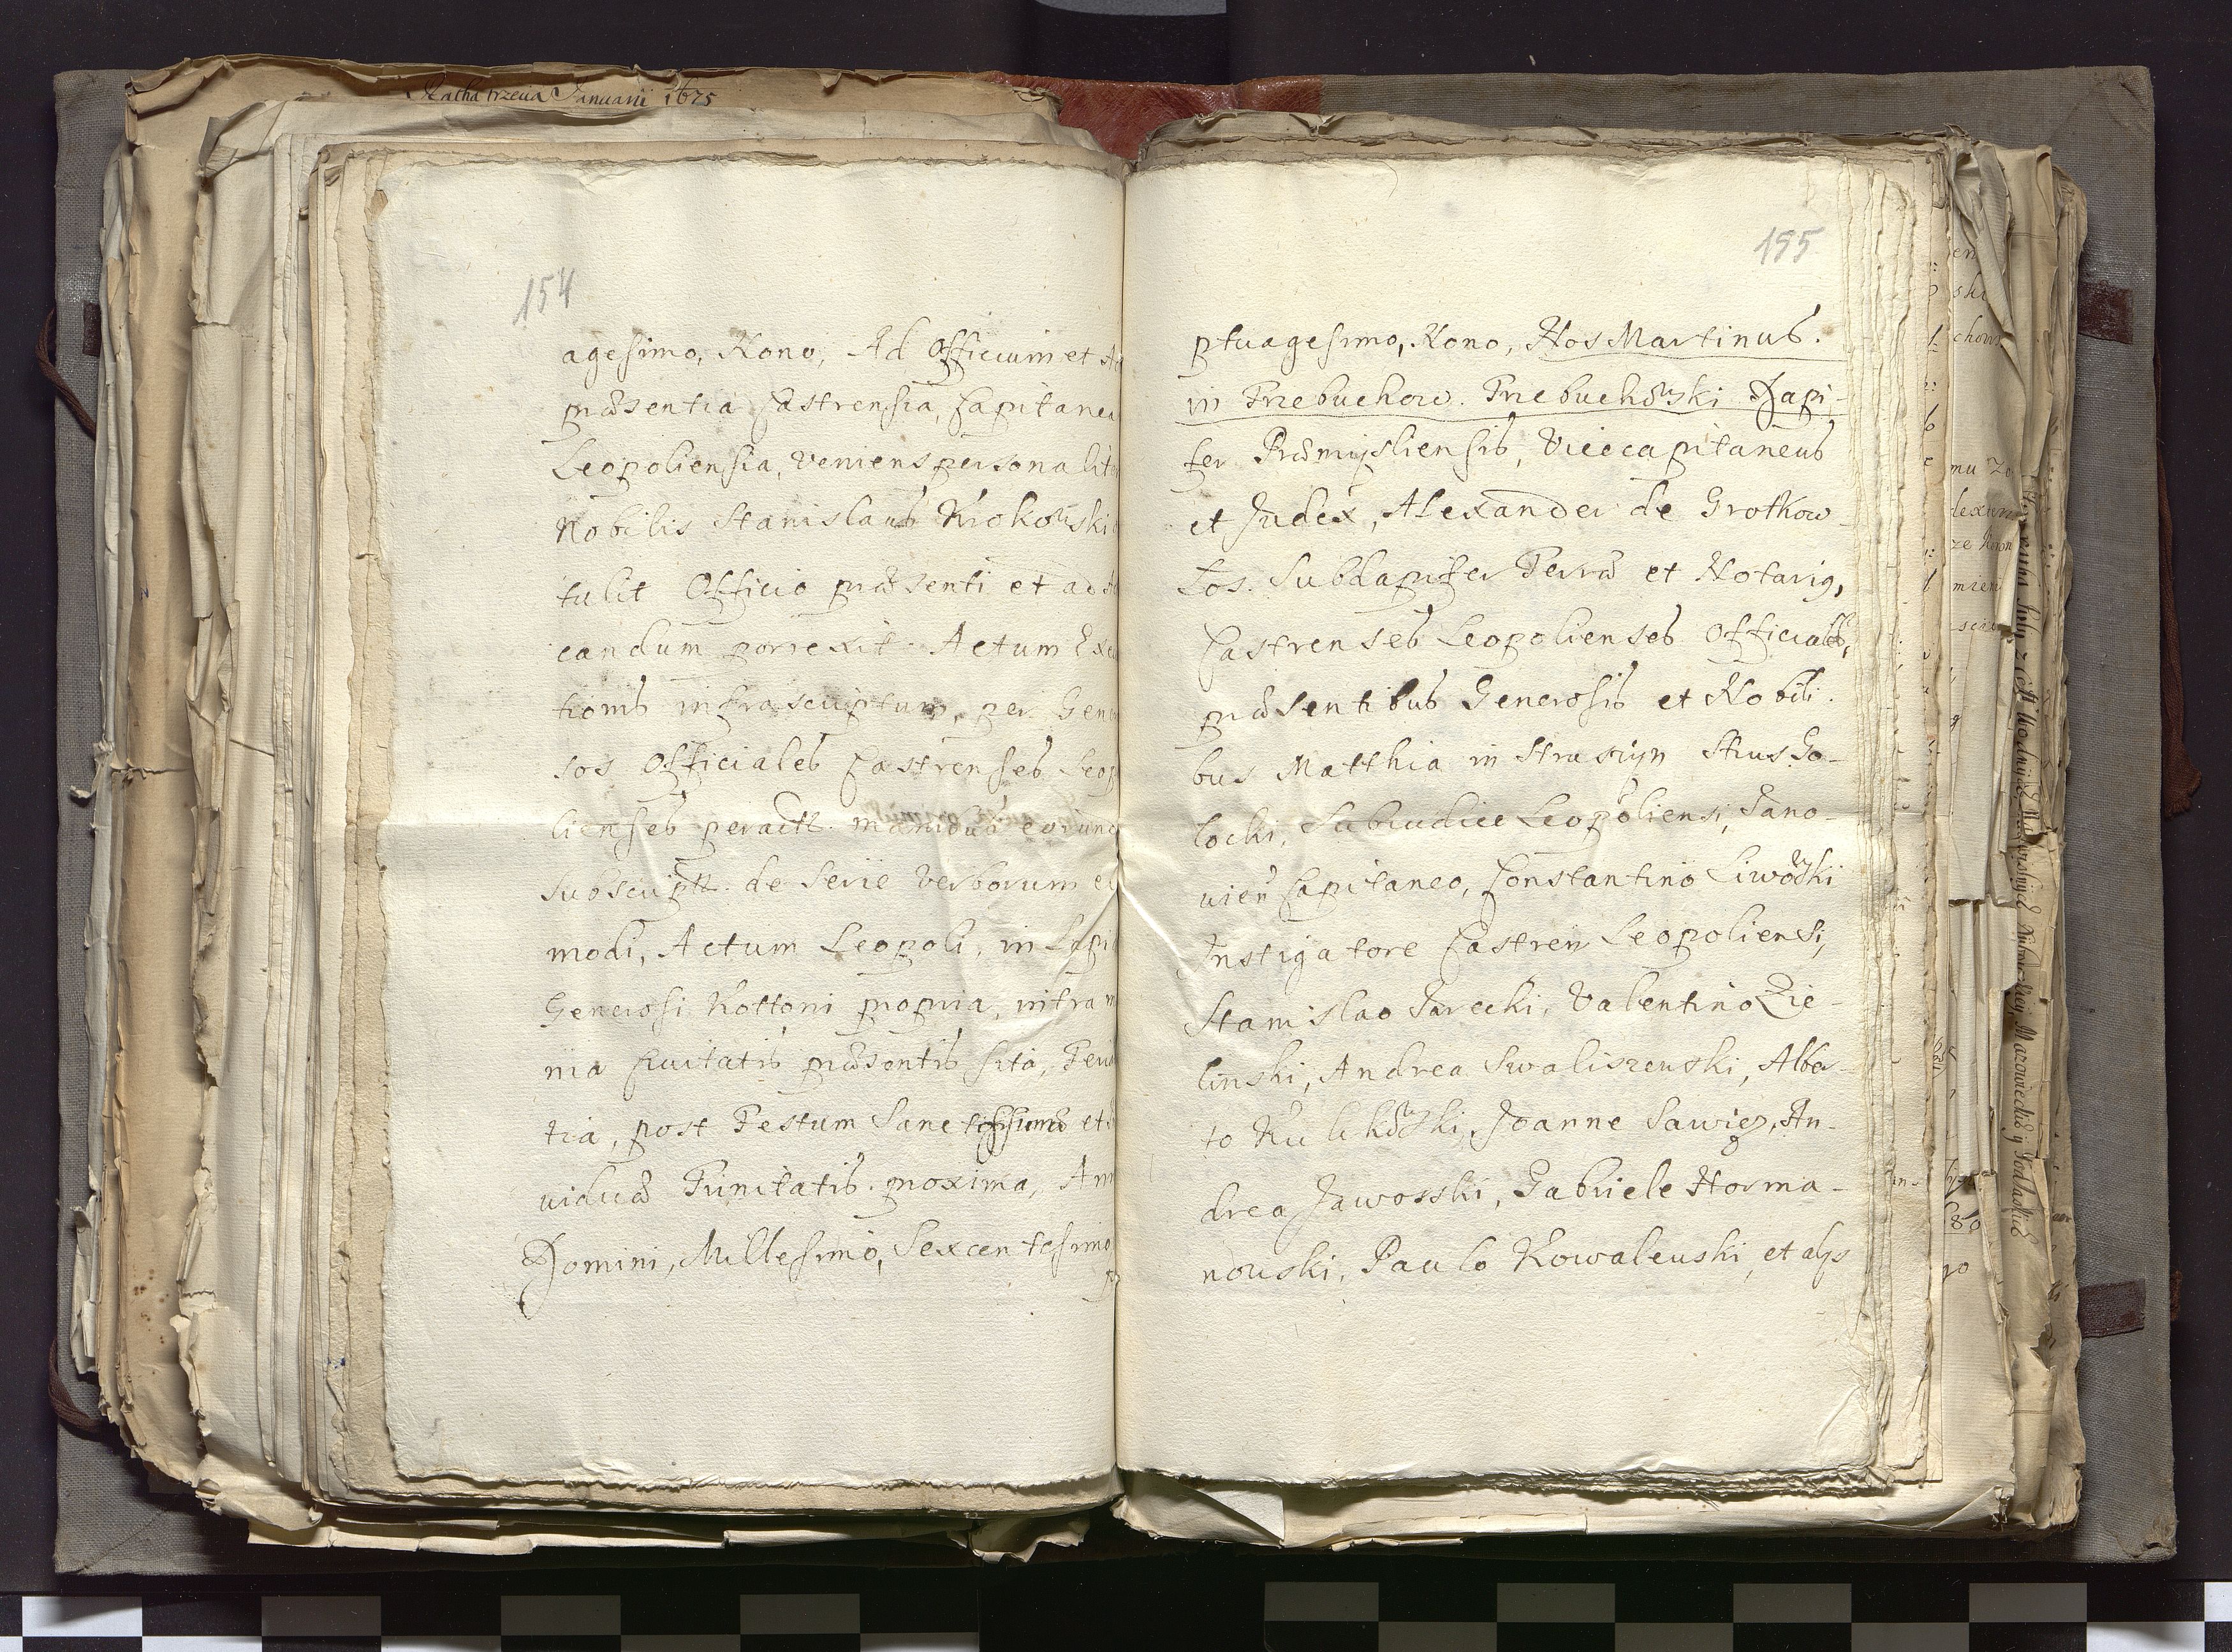 Ratha trzecia Januarii 1675
154
agesimo, Nono, Ad Officium et
præsentia Castrensia, Capitanea
Leopoliensia, veniens personalit
Nobilis Stanislaus Krokowski
tulit Officio præsenti et ad
candum porrexit. Actum Exe
tionis infrascriptum, per Gene
sos Officiales Castrenses Leop
lienses peractt. manibus eorund
Subscriptt. de Serie verborum e
modi, Actum Leopoli, in Lapi
Generosi Kottoni propria, intra m
nia Civitatis præsentis sita, Feri
tia, post Festum Sanctissimæ et
viduæ Trinitatis proxima, Ann
Domini, Millesimo, Sexcentesimo
155
ptuagesimo, Nono, Nos Martinus.
in Trzebuchow. Trzebuchowski Dapi-
fer Præmysliensis, Vicecapitaneus
et Judex, Alexander de Grotkow
Łos. Subdapifer Terræ et Notarig,
Castrenses Leopolienses Officiales,
præsentibus Generosis et Nobili.
bus Matthia in Strusiyn Strus Go-
łocki, Subiudice Leopoliensi, Jano-
vien Capitaneo, Constantino Liwoski
Instigatore Castren Leopoliensi,
Stanislao Jarecki, Valentino Zie-
linski, Andrea Swaliszewski, Alber-
to Kulikowski, Joanne Sawicz, An-
drea Jaworski, Gabriele Horma-
nowski, Paulo Kowalewski, et alys